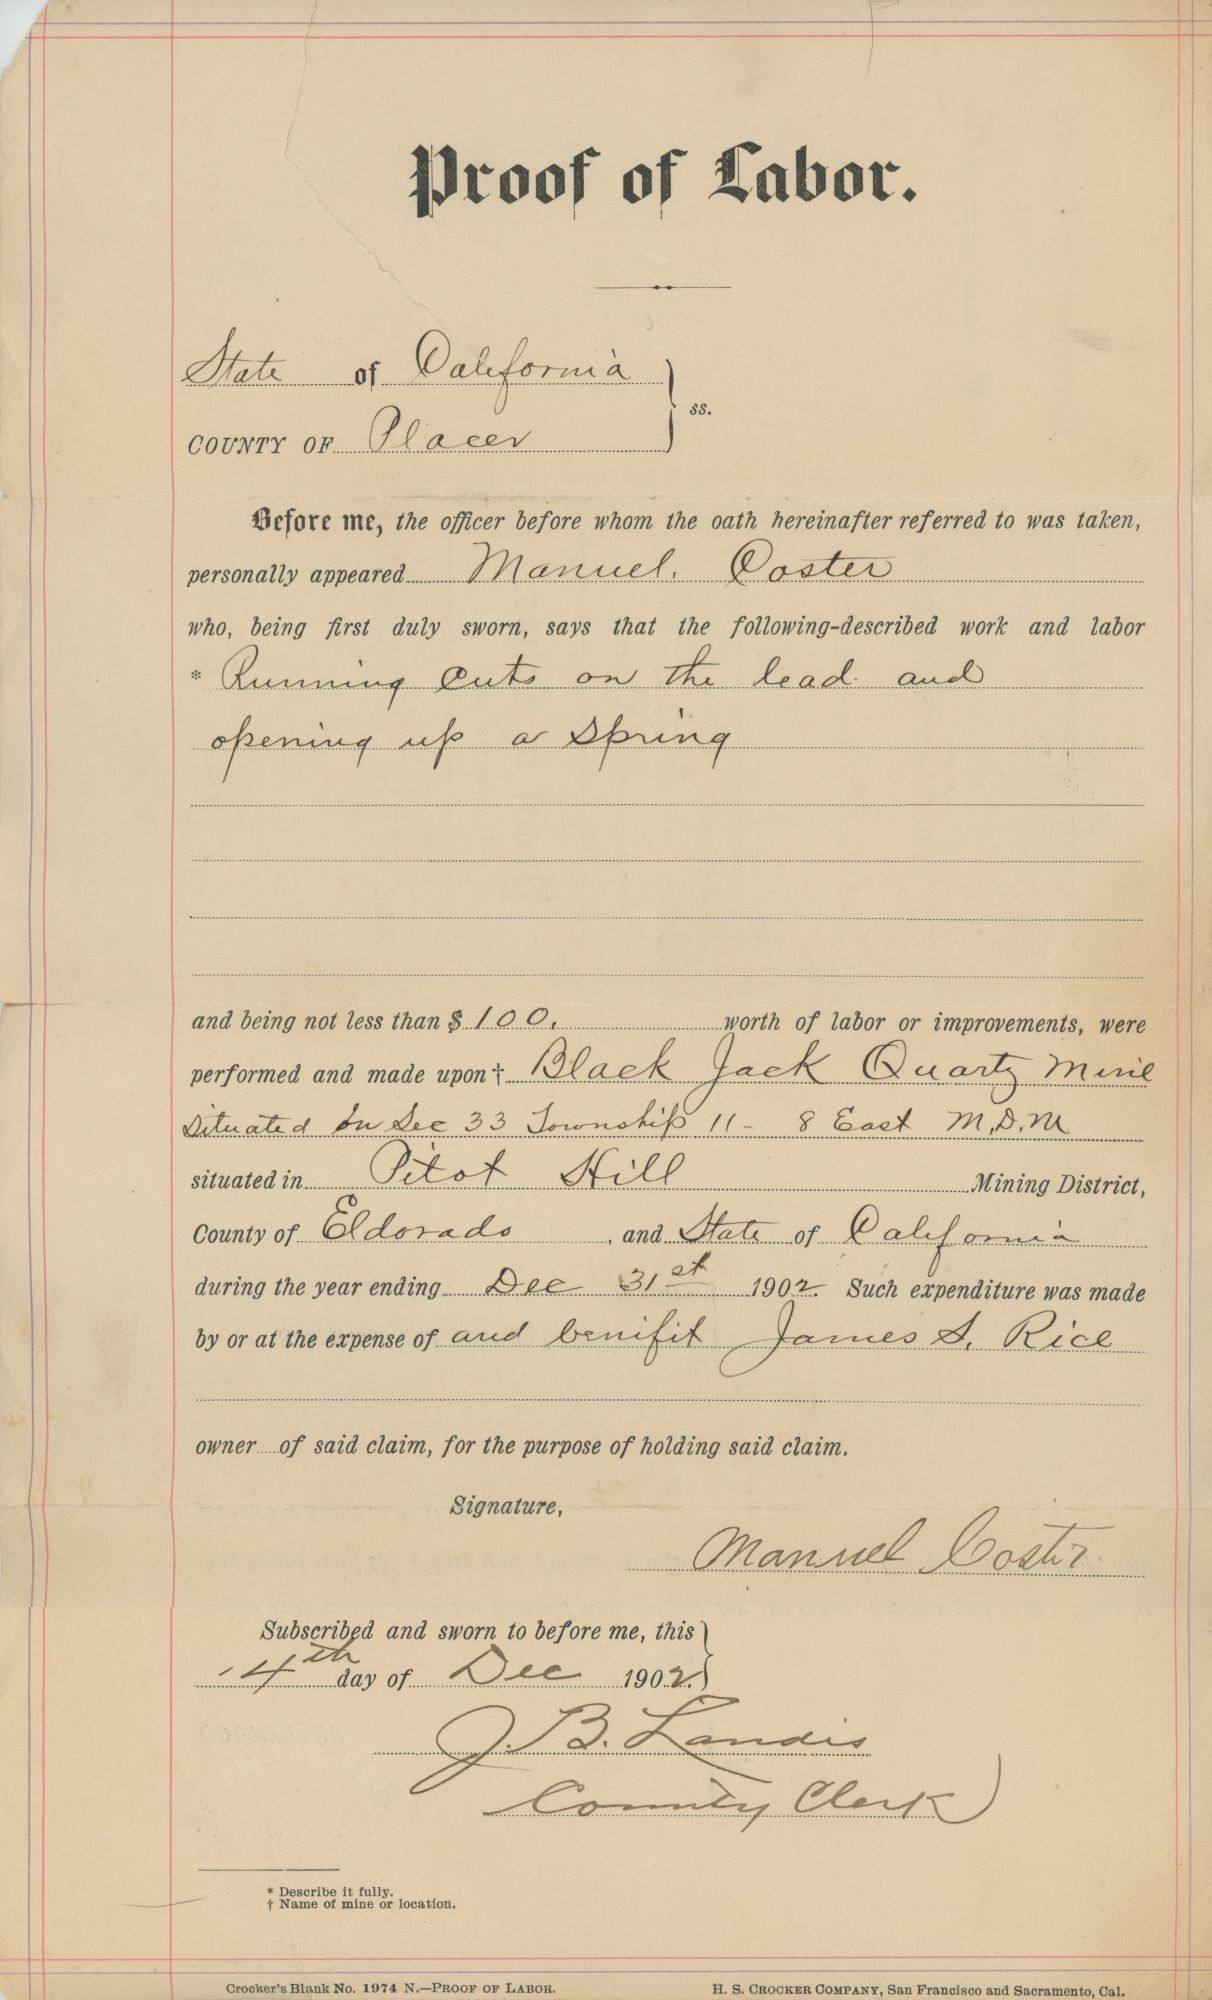 Proof of Labor.
State of California
ss.
COUNTY OF Placer
Before me, the officer before whom the oath hereinafter referred to was taken,
personally appeared Manuel. Coster
who, being first duly sworn, says that the following-described work and labor
* Running cuts on the lead. and
opening up a Spring
and being not less than $ 100. worth of labor or improvements, were
performed and made upon † Black Jack Quartz Mine
Situated in Sec 33 Township 11 - 8 East M.D.M
situated in Pitot Hill Mining District,
County of Eldorado, and State of California
during the year ending Dec 31st 1902. Such expenditure was made
by or at the expense of and benifit James S. Rice
owner of said claim, for the purpose of holding said claim.
Signature,
Manuel Coster
Subscribed and sworn to before me, this
4th day of Dec 1902.
J. B. Landis
County Clerk
* Describe it fully.
† Name of mine or location.
Crocker's Blank No. 1974 N.—PROOF OF LABOR. H. S. CROCKER COMPANY, San Francisco and Sacramento, Cal.